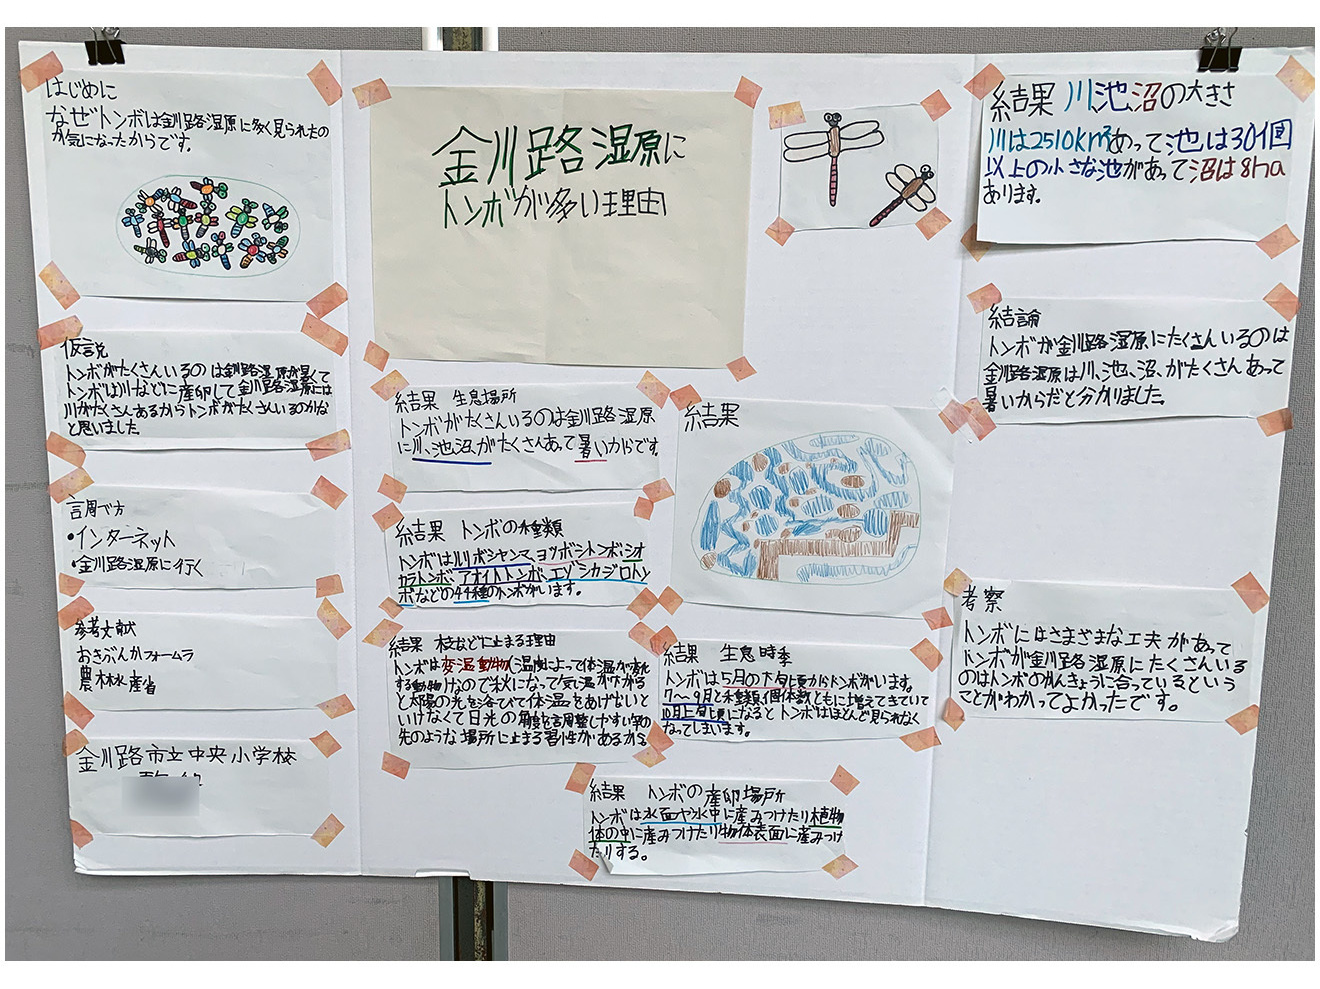 はじめに
なぜトンボは釧路湿原に多く見られたの
か気になったからです。
仮説
トンボがたくさんいるのは釧路湿原が暑くて
トンボは川などに産卵して釧路湿原には
川がたくさんあるからトンボがたくさんいるのかな
と思いました。
調べ方
・インターネット
・釧路湿原に行く
参考文献
おさぶんかフォームラ
農林水産省
釧路市立中央小学校
釧路湿原に
トンボが多い理由
結果 生息場所
トンボがたくさんいるのは釧路湿原
に川、池、沼、がたくさんあって暑いからです。
結果 トンボの種類
トンボはルリボシヤンマ、ヨツボシトンボ、シオ
カラトンボ、アオイトトンボ、エゾシカジロトン
ボなどの44種のトンボがいます。
結果 枝などに止まる理由
トンボは変温動物(温度によって体温が変化
する動物)なので秋になって気温が下がる
と太陽の光を浴びて体温をあげないと
いけなくて日光の角度を調整しやすい竿の
先のような場所に止まる習性があるから
結果
結果 生息時季
トンボは5月の下旬頃からトンボがいます。
7〜9月と種類、個体数ともに増えてきていて
10月上旬頃になるとトンボはほとんど見られなく
なってしまいます。
結果 トンボの産卵場所
トンボは水面や水中に産みつけたり植物
体の中に産みつけたり物体表面に産みつけ
たりする。
結果 川、池、沼の大きさ
川は2510km²あって池は30個
以上の小さな池があって沼は8ha
あります。
結論
トンボが釧路湿原にたくさんいるのは
釧路湿原は川、池、沼、がたくさんあって
暑いからだと分かりました。
考察
トンボにはさまざまな工夫があって
トンボが釧路湿原にたくさんいる
のはトンボのかんきょうに合っているという
ことがわかってよかったです。